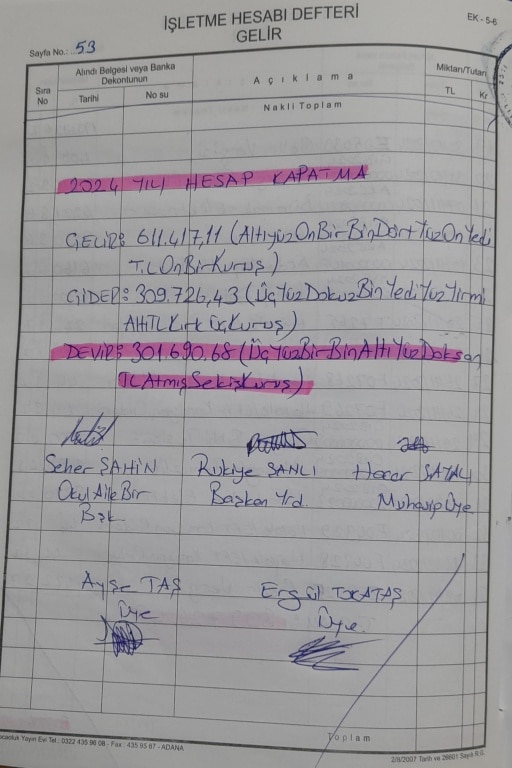 EK.-5-6
İŞLETME HESABI DEFTERİ
GELİR
Sayfa No.: 53
Sıra No
Alındı Belgesi veya Banka Dekontunun
Tarihi
No su
Açıklama
Miktarı/Tutarı
TL
Kr
Nakli Toplam
2024 YILI HESAP KAPATMA
GELİR: 611.417,11 (AltıyüzOnBirBinDörtYüzOnYedi
T.L OnBirKuruş)
GİDER: 309.726,43 (ÜçYüzDokuzBinYediYüzYirmi
AltıTLKırkÜçKuruş)
DEVİR: 301.690,68 (ÜçYüzBirBinAltıYüzDoksan
TLAtmışSekisKuruş)
Seher ŞAHİN
Okul Aile Bir
Bşk
Rukiye SANLI
Başkan Yrd.
Hacer SATALI
Muhasip Üye
Ayşe TAŞ
Üye
Ergül TOKATAŞ
Üye
Toplam
Yayın Evi Tel.: 0322 435 96 08 - Fax : 435 95 87 - ADANA
2/8/2007 Tarih ve 26601 Sayılı R.G.